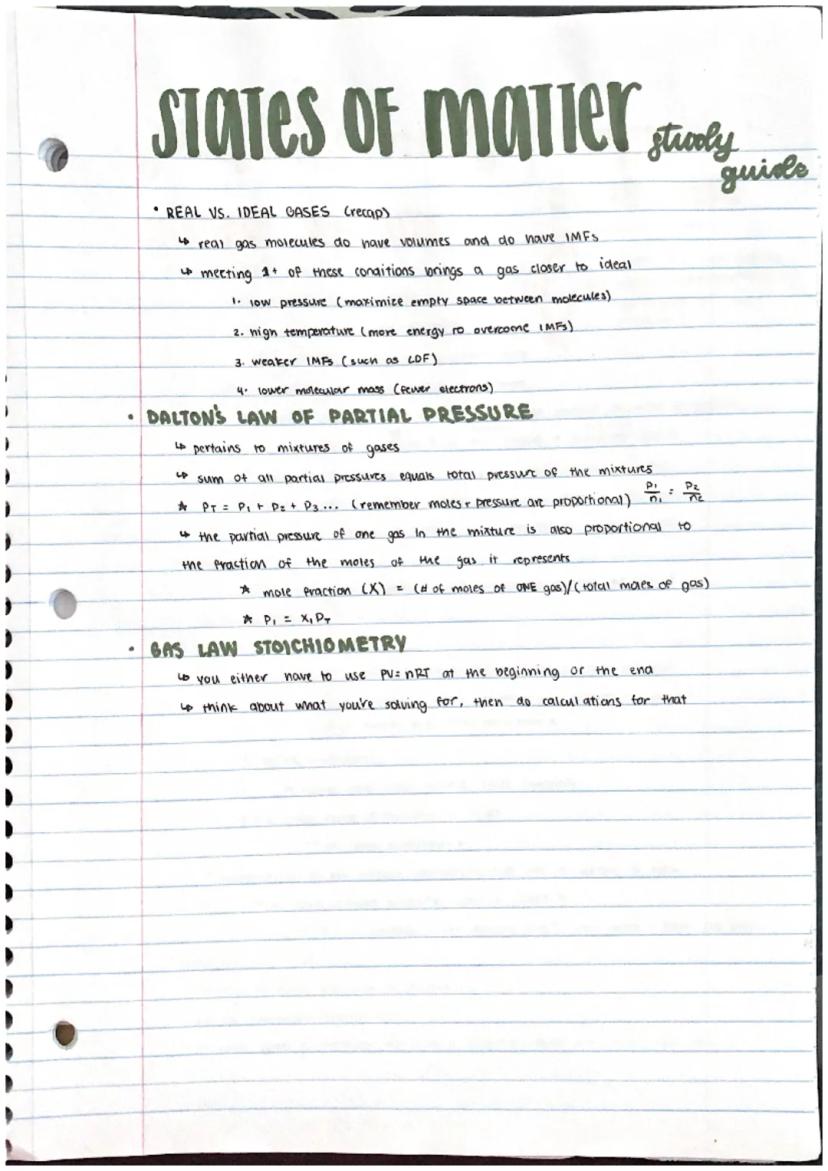 STATES OF MATTER study guide
• REAL VS. IDEAL GASES (recap)
↳ real gas molecules do have volumes and do have IMFs
↳ meeting 1+ of these conditions brings a gas closer to ideal
1. low pressure (maximize empty space between molecules)
2. high temperature (more energy to overcome IMFs)
3. weaker IMFs (such as LDF)
4. lower molecular mass (fewer electrons)
• DALTON'S LAW OF PARTIAL PRESSURE
↳ pertains to mixtures of gases
↳ sum of all partial pressures equals total pressure of the mixtures
☆ PT = P1 + P2 + P3... (remember moles + pressure are proportional) P1/n1 = P2/n2
↳ the partial pressure of one gas in the mixture is also proportional to
the fraction of the moles of the gas it represents
☆ mole fraction (X) = (# of moles of ONE gas)/(total moles of gas)
☆ P1 = X1PT
• GAS LAW STOICHIOMETRY
↳ you either have to use PV=nRT at the beginning or the end
↳ think about what you're solving for, then do calculations for that